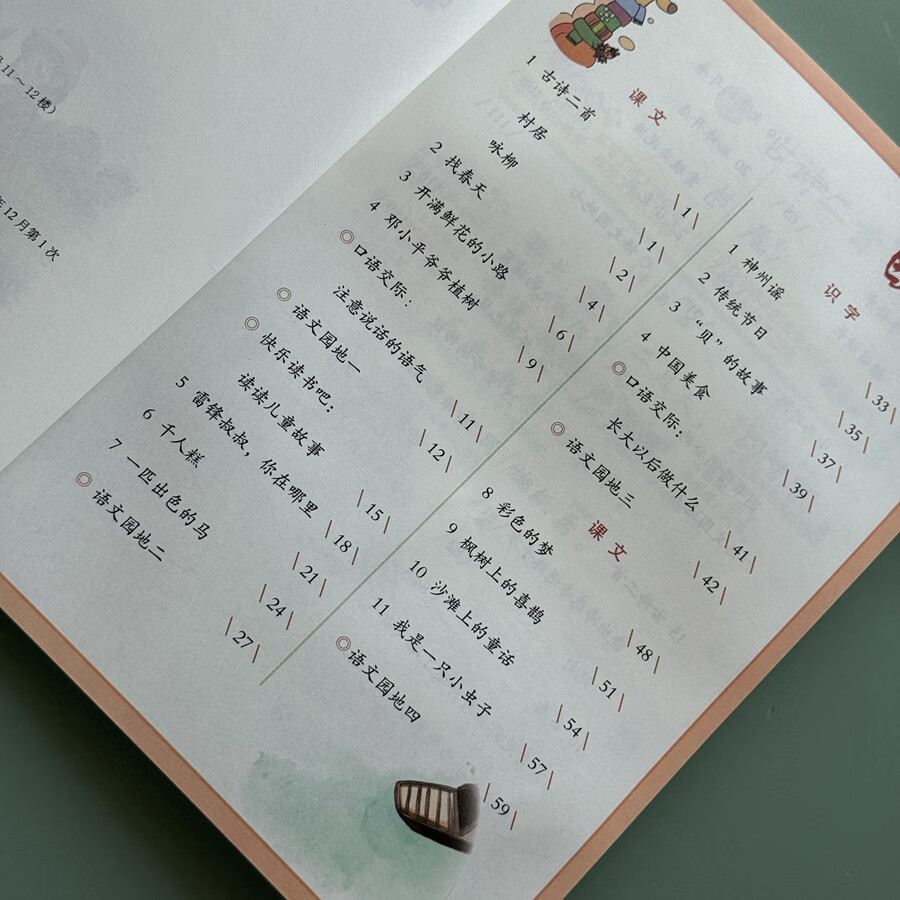 11～12楼)
年12月第1次
课文
1 古诗二首 \1\
村居 \1\
咏柳 \2\
2 找春天 \4\
3 开满鲜花的小路 \6\
4 邓小平爷爷植树 \9\
◎口语交际：
注意说话的语气 \11\
◎语文园地一 \12\
◎快乐读书吧：
读读儿童故事 \15\
5 雷锋叔叔，你在哪里 \18\
6 千人糕 \21\
7 一匹出色的马 \24\
◎语文园地二 \27\
识字
1 神州谣 \33\
2 传统节日 \35\
3 “贝”的故事 \37\
4 中国美食 \39\
◎口语交际：
长大以后做什么 \41\
◎语文园地三 \42\
课文
8 彩色的梦 \48\
9 枫树上的喜鹊 \51\
10 沙滩上的童话 \54\
11 我是一只小虫子 \57\
◎语文园地四 \59\